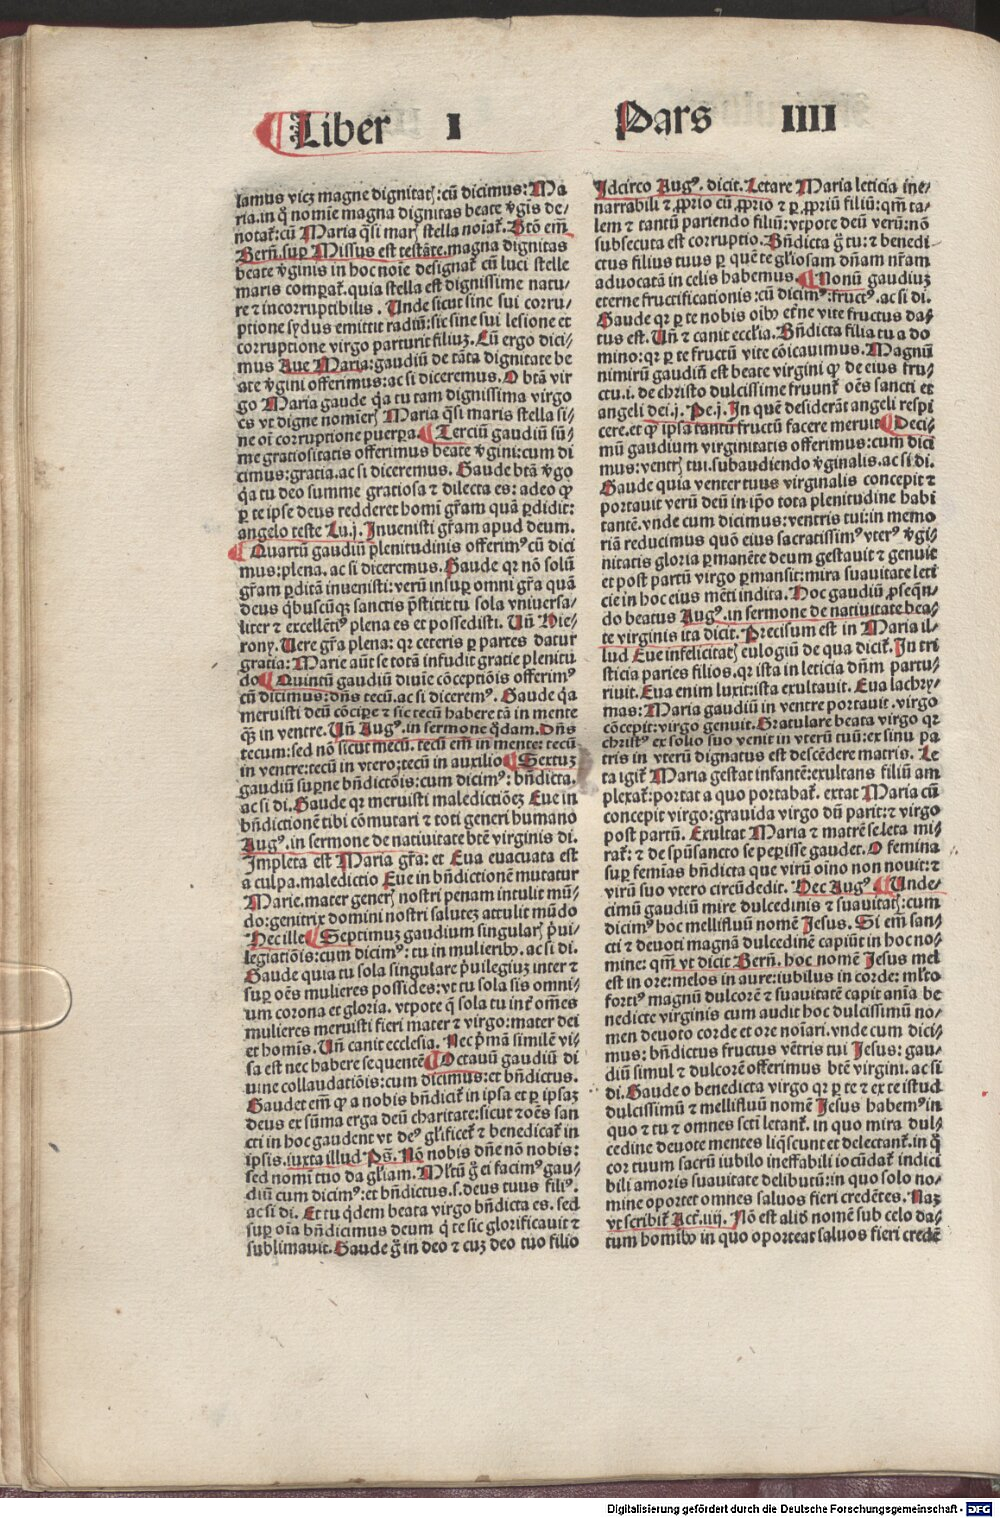 Liber I Pars IIII
lamus vicz magne dignitatꝭ: cū dicimus: Ma
ria. in q̄ nomine magna dignitas beate v̄gīs de/
notat̄: cū Maria q̄si marꝭ stella noīat̄. Btō em̄
Bern̄. sup̄ Missus est testāte. magna dignitas
beate v̄ginis in hoc noīe designat̄ cū luci stelle
maris comparat̄. quia stella est dignissime natu/
re ⁊ incorruptibilis. Unde sicut sine sui corru/
ptione sydus emittit radiū: sic sine sui lesione et
corruptione virgo parturit filiuz. Cū ergo dici/
mus Aue Maria: gaudiū de tāta dignitate be
ate v̄gini offerimus: ac si diceremus. O btā vir
go Maria gaude q̄a tu tam dignissima virgo
es vt digne nomierꝭ Maria q̄si maris stella si/
ne oī corruptione puerpa. Terciū gaudiū sū/
me gratiositatis offerimus beate v̄gini: cum di
cimus: gratia. ac si diceremus. Gaude btā v̄go
q̄a tu deo summe gratiosa ⁊ dilecta es: adeo ꝙ
ꝑ te ipse deus redderet homī gr̄am quā ꝑdidit:
angelo teste Lu. j. Inuenisti gr̄am apud deum.
Quartū gaudiū plenitudinis offerimꝰ cū dici
mus: plena. ac si diceremus. Gaude qr nō solū
gr̄am ꝑditā inuenisti: verū insuꝑ omni gr̄a quā
deus q̄buscūqꝫ sanctis p̄stitit tu sola vniuersa/
liter ⁊ excellētiꝰ plena es et possedisti. Un̄ Hie/
rony. Uere gr̄a plena: qr ceteris ꝑ partes datur
gratia: Marie aūt se totā infudit gratie plenitu
do Quintū gaudiū diuīe cōceptiōis offerimꝰ
cū dicimus: dn̄s tecū. ac si diceremꝰ. Gaude q̄a
meruisti deū cōcipe ⁊ sic tecū habere tā in mente
q̄ꝫ in ventre. Un̄ Augꝰ. in sermone q̄dam. Dn̄s
tecum: sed nō sicut mecū. tecū em̄ in mente: tecū
in ventre: tecū in vtero; tecū in auxilio Sextuz
gaudiū suꝑne bn̄dictōis: cum dicimꝰ: bn̄dicta.
ac si di. Gaude qr meruisti maledictiōeꝫ Eue in
bn̄dictionē tibi cōmutari ⁊ toti generi humano
Augꝰ. in sermone de natiuitate btē virginis di.
Impleta est Maria gr̄a: et Eua euacuata est
a culpa. maledictio Eue in bn̄dictionē mutatur
Marie. mater generꝭ nostri penam intulit mū/
do: genitrix domini nostri salutez attulit mūdo
Hec ille Septimuz gaudium singularꝭ p̄ui/
legiatiōis: cum dicimꝰ: tu in mulieribꝰ. ac si di.
Gaude quia tu sola singulare p̄uilegiuz inter ⁊
suꝑ oēs mulieres possides: vt tu sola sis omni/
um corona et gloria. vtpote q̄ sola tu int̄ om̄es
mulieres meruisti fieri mater ⁊ virgo: mater dei
et homīs. Un̄ canit ecclesia. Nec p̄mā similē vi/
sa est nec habere sequentē Octauū gaudiū di
uine collaudatiōis: cum dicimus: et bn̄dictus.
Gaudet em̄ ꝙ a nobis bn̄dicit̄ in ipsa et ꝑ ipsaz
deus ex sūma erga deū charitate: sicut ⁊ oēs san
cti in hoc gaudent vt deꝰ gl̄ificet̄ ⁊ benedicat̄ in
ipsis. iuxta illud Pꝰ. Nō nobis dn̄e nō nobis:
sed nomī tuo da gl̄iam. Ml̄tū ḡ ei facimꝰ gau/
diū cum dicimꝰ: et bn̄dictus. s. deus tuus filiꝰ.
ac si di. Et tu q̄dem beata virgo bn̄dicta es. sed
suꝑ oīa bn̄dicimus deum q̄ te sic glorificauit ⁊
sublimauit. Gaude ḡ in deo ⁊ cuz deo tuo filio
Idcirco Augꝰ. dicit. Letare Maria leticia ine/
narrabili ⁊ ꝓprio cū ꝓprio ⁊ ꝑ ꝓpriū filiū: qm̄ ta/
lem ⁊ tantū pariendo filiū: vtpote deū verū: nō
subsecuta est corruptio. Bn̄dicta ḡ tu: ⁊ benedi
ctus filius tuus ꝑ quē te gl̄iosam dn̄am nr̄am
aduocatā in celis habemus. Nonū gaudiuz
eterne fructificationis: cū dicimꝰ: fructꝰ. ac si di.
Gaude qr ꝑ te nobis oibꝰ et̄ne vite fructus da/
tus est. Un̄ ⁊ canit eccl̄ia. Bn̄dicta filia tu a do
mino: qr ꝑ te fructū vite cōicauimus. Magnū
nimirū gaudiū est beate virgini ꝙ de eius fru/
ctu. i. de christo dulcissime fruunt̄ oēs sancti et
angeli dei. j. Pe. j. In quē desiderāt angeli respi
cere. et ꝙ ipsa tantū fructū facere meruit Deci
mū gaudium virginitatis offerimus: cum dici
mus: ventrꝭ tui. subaudiendo v̄ginalis. ac si di.
Gaude quia venter tuus virginalis concepit ⁊
portauit verū deū in ip̄o tota plenitudine habi
tantē. vnde cum dicimus: ventris tui: in memo
riā reducimus quō eius sacratissimꝰ vterꝰ v̄gi/
nitatis gloria ꝑmanēte deum gestauit ⁊ genuit
et post partū virgo ꝑmansit: mira suauitate leti
cie in hoc eius mēti indita. Hoc gaudiū ꝓseqn̄/
do beatus Augꝰ. in sermone de natiuitate bea/
te virginis ita dicit. Precisum est in Maria il/
lud Eue infelicitatꝭ eulogiū de qua dicit̄. In tri
sticia paries filios. qr ista in leticia dn̄m partu/
riuit. Eua enim luxit: ista exultauit. Eua lachry/
mas: Maria gaudiū in ventre portauit. virgo
cōcepit: virgo genuit. Gratulare beata virgo qr
christꝰ ex solio suo venit in vterū tuū: ex sinu pa
tris in vterū dignatus est descēdere matris. Le
ta igit̄ Maria gestat infantē: exultans filiū am
plexat̄: portat a quo portabat̄. extat Maria cū
concepit virgo: grauida virgo dū parit: ⁊ virgo
post partū. Exultat Maria ⁊ matrē se leta mi/
rat̄: ⁊ de spūsancto se peperisse gaudet. O femina
suꝑ femias bn̄dicta que virū oīno non nouit: ⁊
virū suo vtero circūdedit. Hec Augꝰ Unde/
cimū gaudiū mire dulcedinis ⁊ suauitatꝭ: cum
dicimꝰ hoc mellifluū nomē Jesus. Si em̄ san/
cti ⁊ deuoti magnā dulcedinē capiūt in hoc no/
mine: qm̄ vt dicit Bern̄. hoc nomē Jesus mel
est in ore: melos in aure: iubilus in corde: ml̄to
fortiꝰ magnū dulcorē ⁊ suauitatē capit anīa be
nedicte virginis cum audit hoc dulcissimū no/
men deuoto corde et ore noīari. vnde cum dici/
mus: bn̄dictus fructus vētris tui Jesus: gau/
diū simul ⁊ dulcorē offerimus btē virgini. ac si
di. Gaude o benedicta virgo qr ꝑ te ⁊ ex te istud
dulcissimū ⁊ mellifluū nomē Jesus habemꝰ in
quo ⁊ tu ⁊ omnes sctī letant̄. in quo mira dul/
cedine deuote mentes liq̄scunt et delectant̄. in q̄
cor tuum sacrū iubilo ineffabili iocūdat̄ indici
bili amoris suauitate delibutū: in quo solo no/
mine oportet omnes saluos fieri credētes. Naz
vt scribit̄ Act. iiij. Nō est aliđ nomē sub celo da/
tum homībꝰ in quo oporteat saluos fieri credē
Digitalisierung gefördert durch die Deutsche Forschungsgemeinschaft - DFG